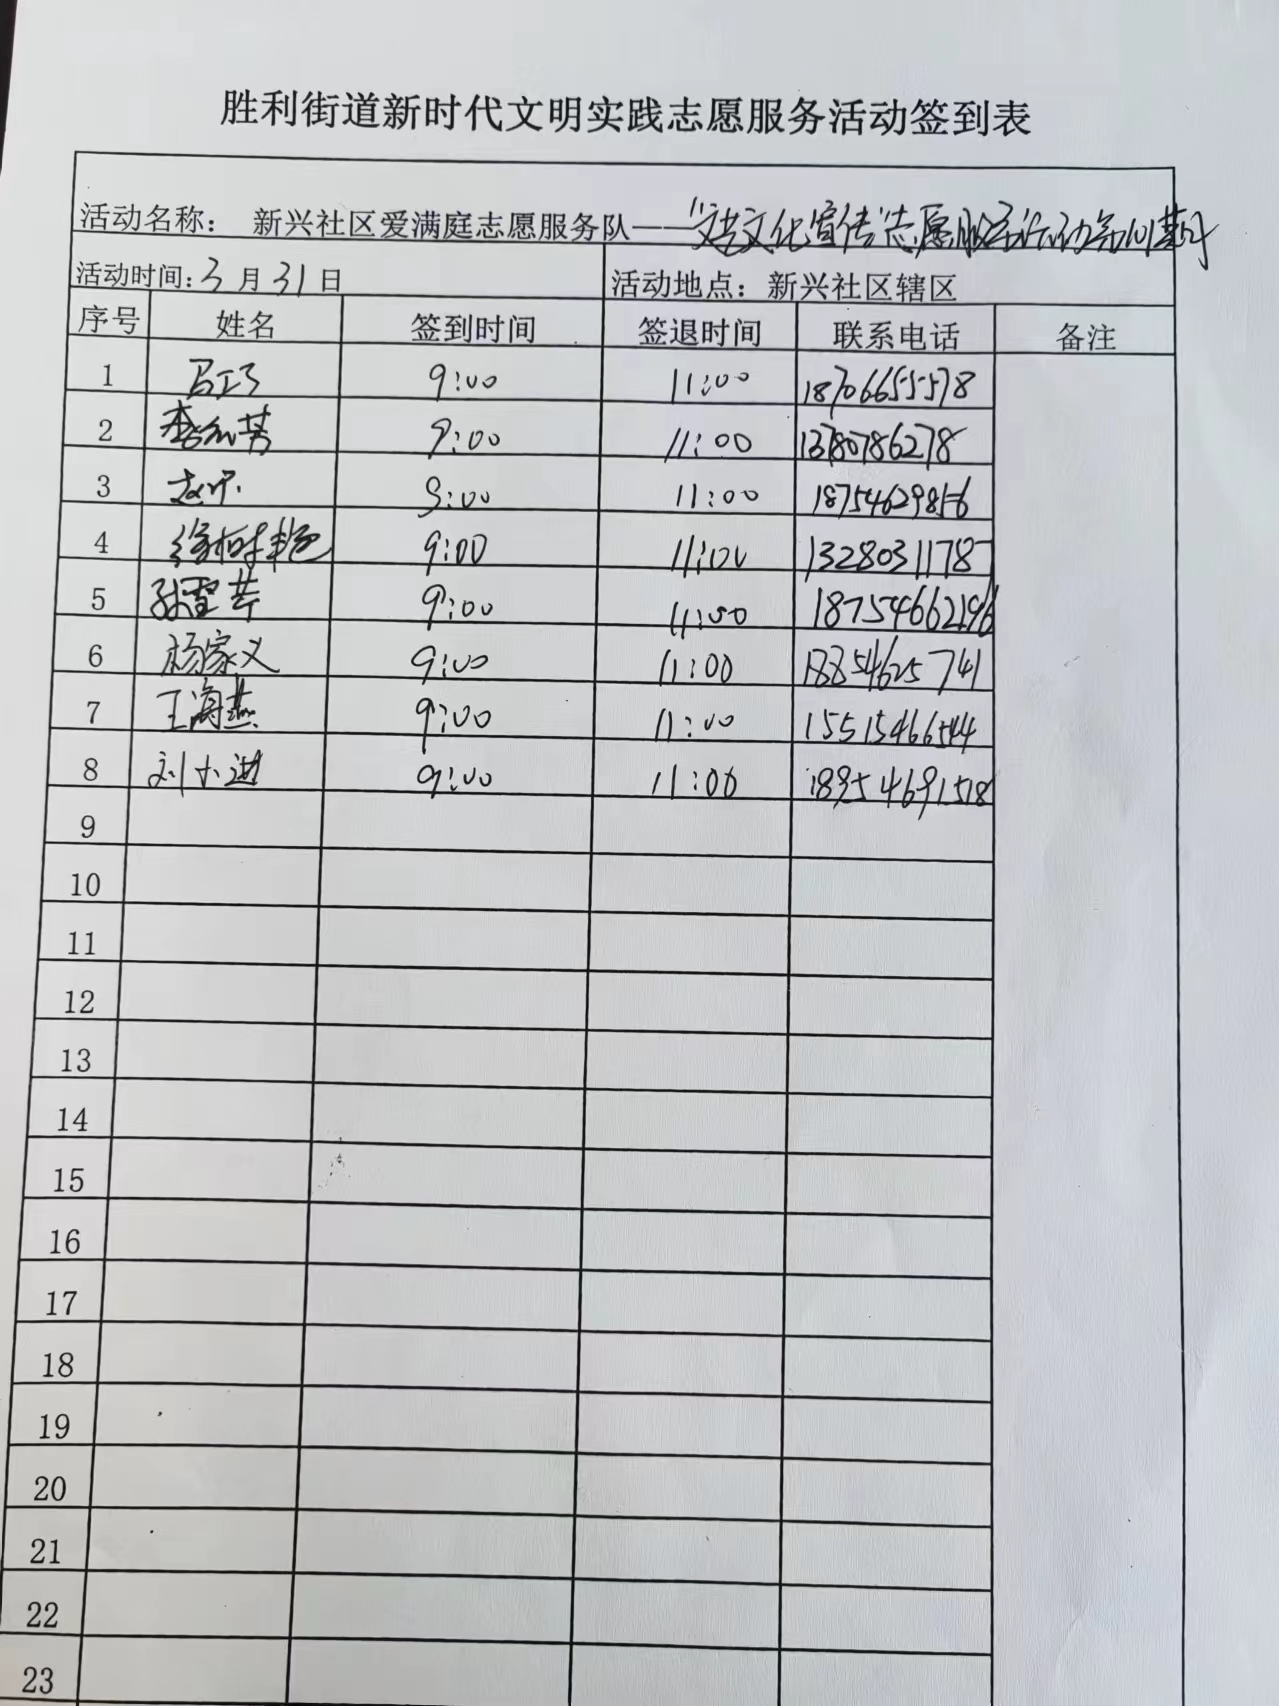 胜利街道新时代文明实践志愿服务活动签到表
活动名称： 新兴社区爱满庭志愿服务队——"文艺文化宣传"志愿服务活动
活动时间：3月31日 活动地点：新兴社区辖区
序号 姓名 签到时间 签退时间 联系电话 备注
1 9:00 11:00 18706655578
2 9:00 11:00 13780786278
3 9:00 11:00 18754629856
4 9:00 11:00 1328031178
5 孙雪芹 9:00 11:00 18754662196
6 杨家义 9:00 11:00 18854625741
7 王海燕 9:00 11:00 15515466544
8 刘大进 9:00 11:00 18954691518
9
10
11
12
13
14
15
16
17
18
19
20
21
22
23